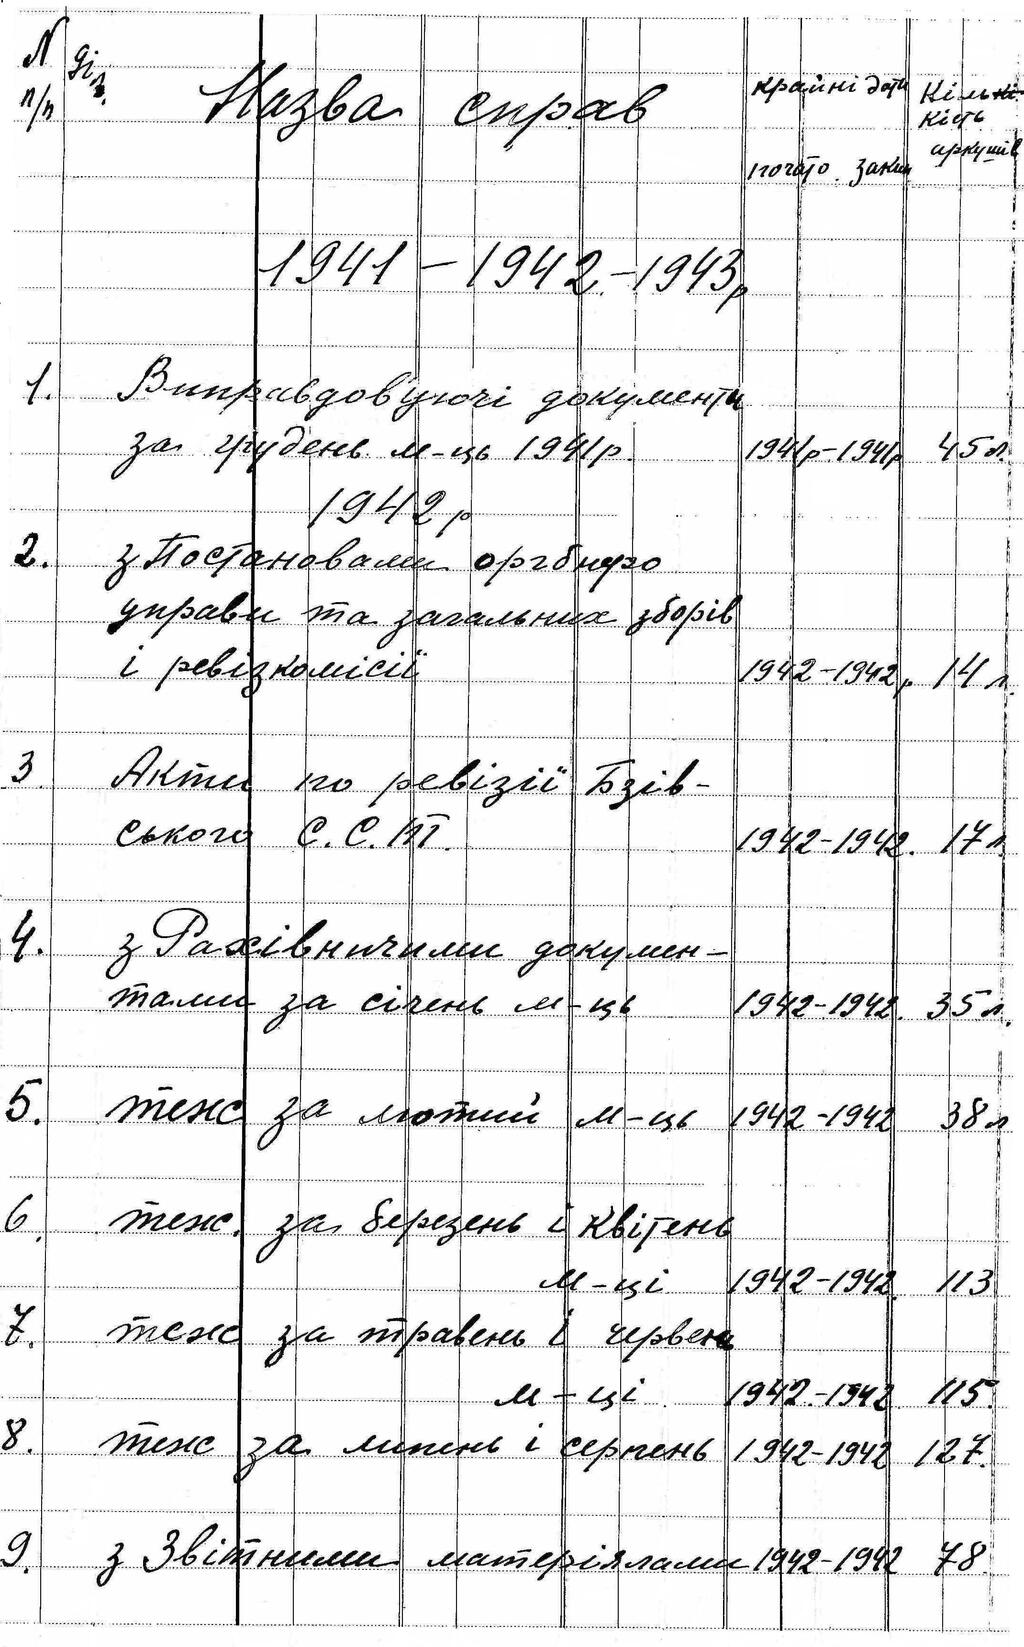 N
п/п
діл.
Назва справ
крайні дати
почато. закін
Кіль-
кість
аркушів
1941 – 1942. – 1943р
1. Виправдов'уючі документи
за грудень м-ць 1941р. 1941р-1941р 45л.
1942р
2. з Постановами оргбюро
управи та загальних зборів
і ревізкомісії 1942-1942р 14л.
3 Акти по ревізії Бзів-
ського С.С.Т. 1942-1942. 17л
4. з Рахівничими докумен-
тами за січень м-ць 1942-1942. 35л.
5. теж за лютий м-ць 1942-1942 38л
6. теж. за березень і квітень
м-ці 1942-1942. 113
7. теж за травень і червень
м-ці 1942.-1942 115.
8. теж за липень і серпень 1942-1942 127.
9. з Звітними матеріялами 1942-1942 78.